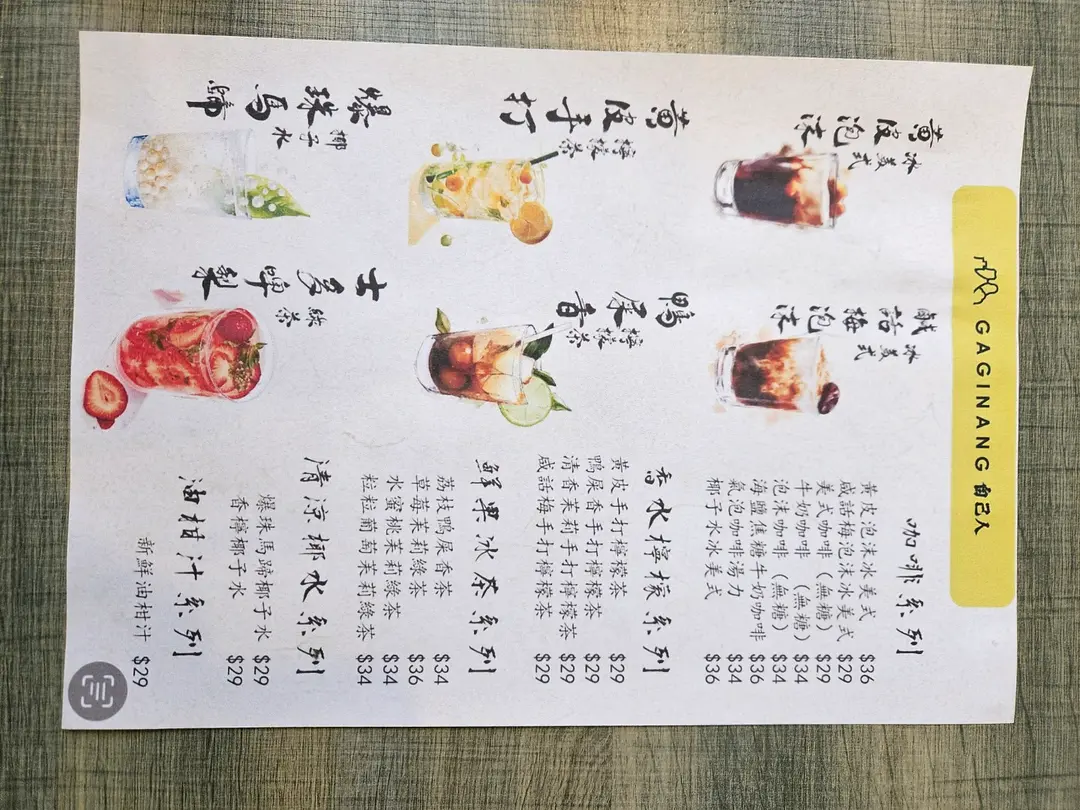 GAGINANG 自己人
黃皮泡沫
冰美式
鹹話梅泡沫
冰美式
黃皮手打
檸檬茶
鴨屎香
檸檬茶
爆珠馬蹄
椰子水
士多啤梨
綠茶
咖啡系列
黃皮泡沫冰美式 $36
咸話梅泡沫冰美式 $29
美式咖啡（無糖） $29
牛奶咖啡（無糖） $34
泡沫咖啡（無糖） $34
海鹽焦糖牛奶咖啡 $36
氣泡咖啡湯力 $34
椰子水冰美式 $36
香水檸檬系列
黃皮手打檸檬茶 $29
鴨屎香手打檸檬茶 $29
清香茉莉手打檸檬茶 $29
咸話梅手打檸檬茶 $29
鮮果冰茶系列
荔枝鴨屎香茶 $34
草莓茉莉綠茶 $36
水蜜桃茉莉綠茶 $34
粒粒葡萄茉莉綠茶 $34
清涼椰水系列
爆珠馬蹄椰子水 $29
香檸椰子水 $29
油柑汁系列
新鮮油柑汁 $29